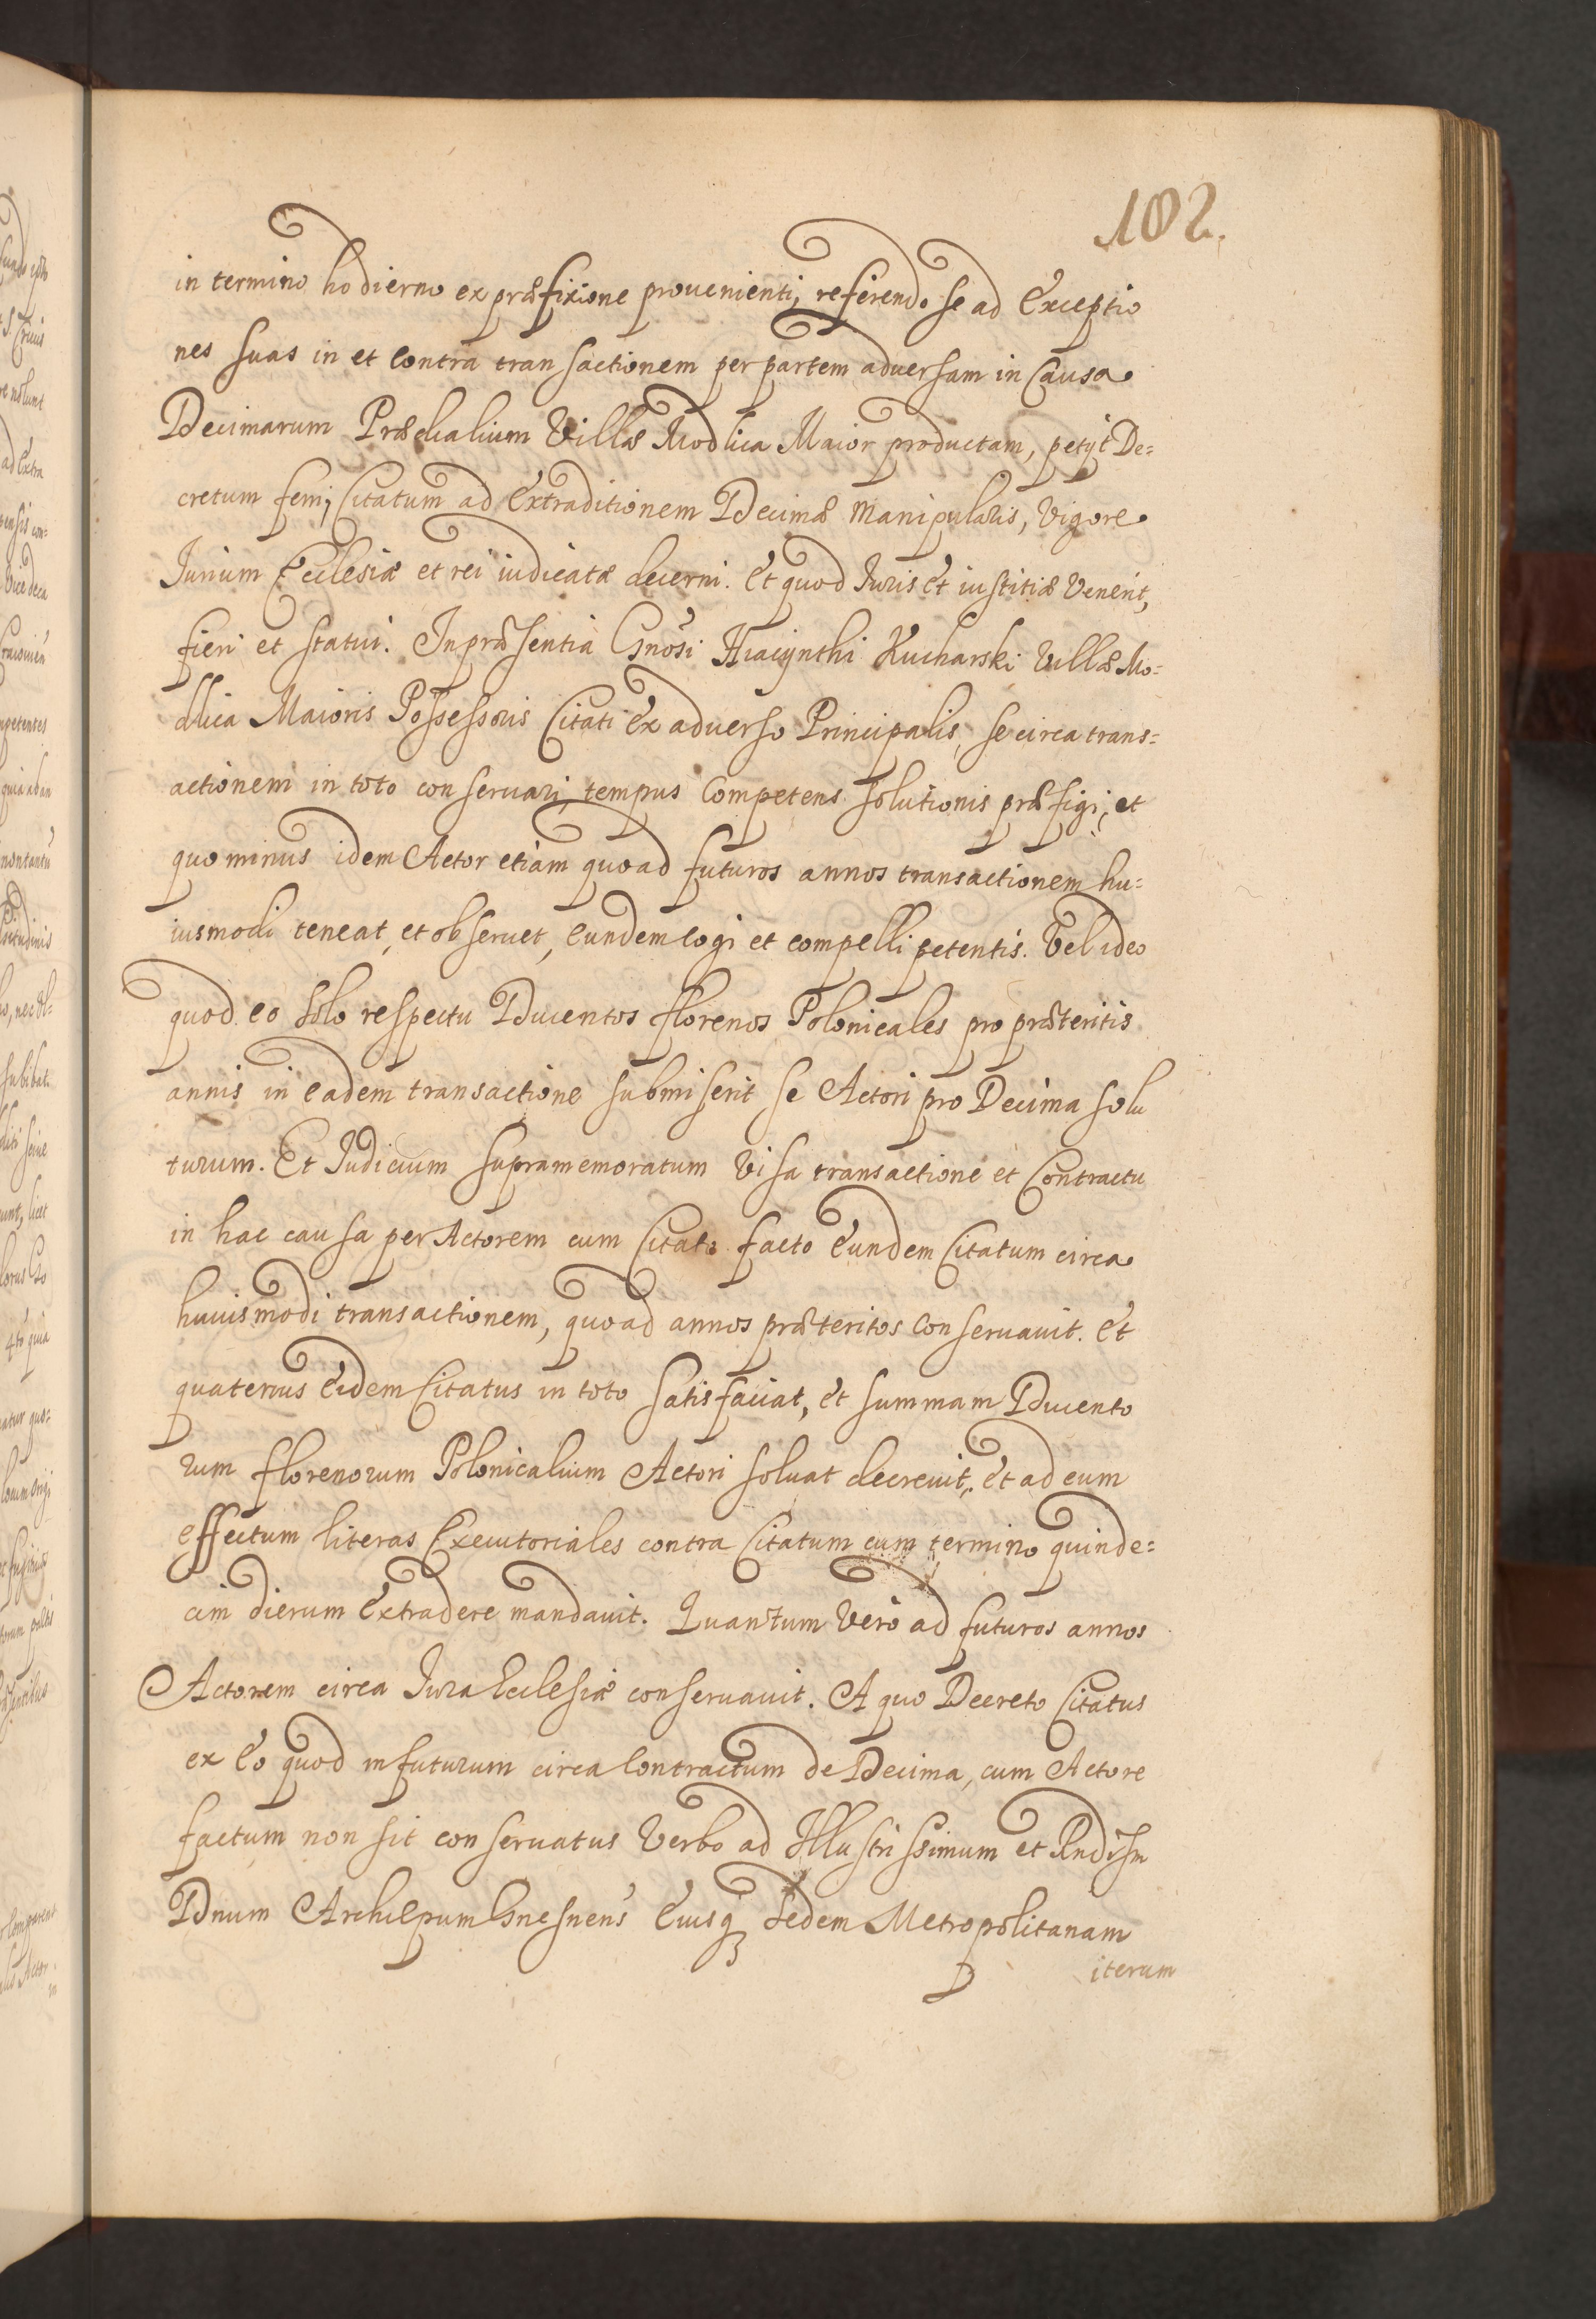 102.
in termino hodierno ex præfixione prouenienti, referendo se ad Exceptio
nes suas in et contra transactionem per partem aduersam in Causa
Decimarum Prædialium Villæ Modlica Maior productam, petijt De=
cretum ferri, Citatum ad Extraditionem Decimæ Manipularis, Vigore
Iurium Ecclesiæ et rei iudicatæ decerni. Et quod Iuris et iustitiæ Venerit,
fieri et statui. In præsentia Gnosi Hiacynthi Kucharski Villæ Mo=
dlica Maioris Possessoris Citati ex aduerso Principalis, se circa trans=
actionem in toto conseruari, tempus Competens solutionis præfigi, et
quominus idem Actor etiam quoad futuros annos transactionem hu=
iusmodi teneat, et obseruet, eundem cogi et compelli petentis. Vel ideo
quod eo solo respectu Ducentos florenos Polonicales pro præteritis
annis in eadem transactione submiserit se Actori pro Decima solu
turum. Et Iudicium supramemoratum Visa transactione et Contractu
in hac causa per Actorem cum Citato facto Eundem Citatum circa
huiusmodi transactionem, quoad annos præteritos Conseruauit. Et
quatenus Eidem Citatus in toto satisfaciat, et summam Ducento
rum florenorum Polonicalium Actori soluat decreuit, et ad eum
effectum literas Executoriales contra Citatum cum termino quinde=
cim dierum Extradere mandauit. Quantum Vero ad futuros annos
Actorem circa Iura Ecclesiæ conseruauit. A quo Decreto Citatus
ex Eo quod in futurum circa Contractum de Decima, cum Actore
factum non sit conseruatus Verbo ad Illustrissimum et Rndissm
Dnum Archiepum Gnesnens Eiusq sedem Metropolitanam
iterum